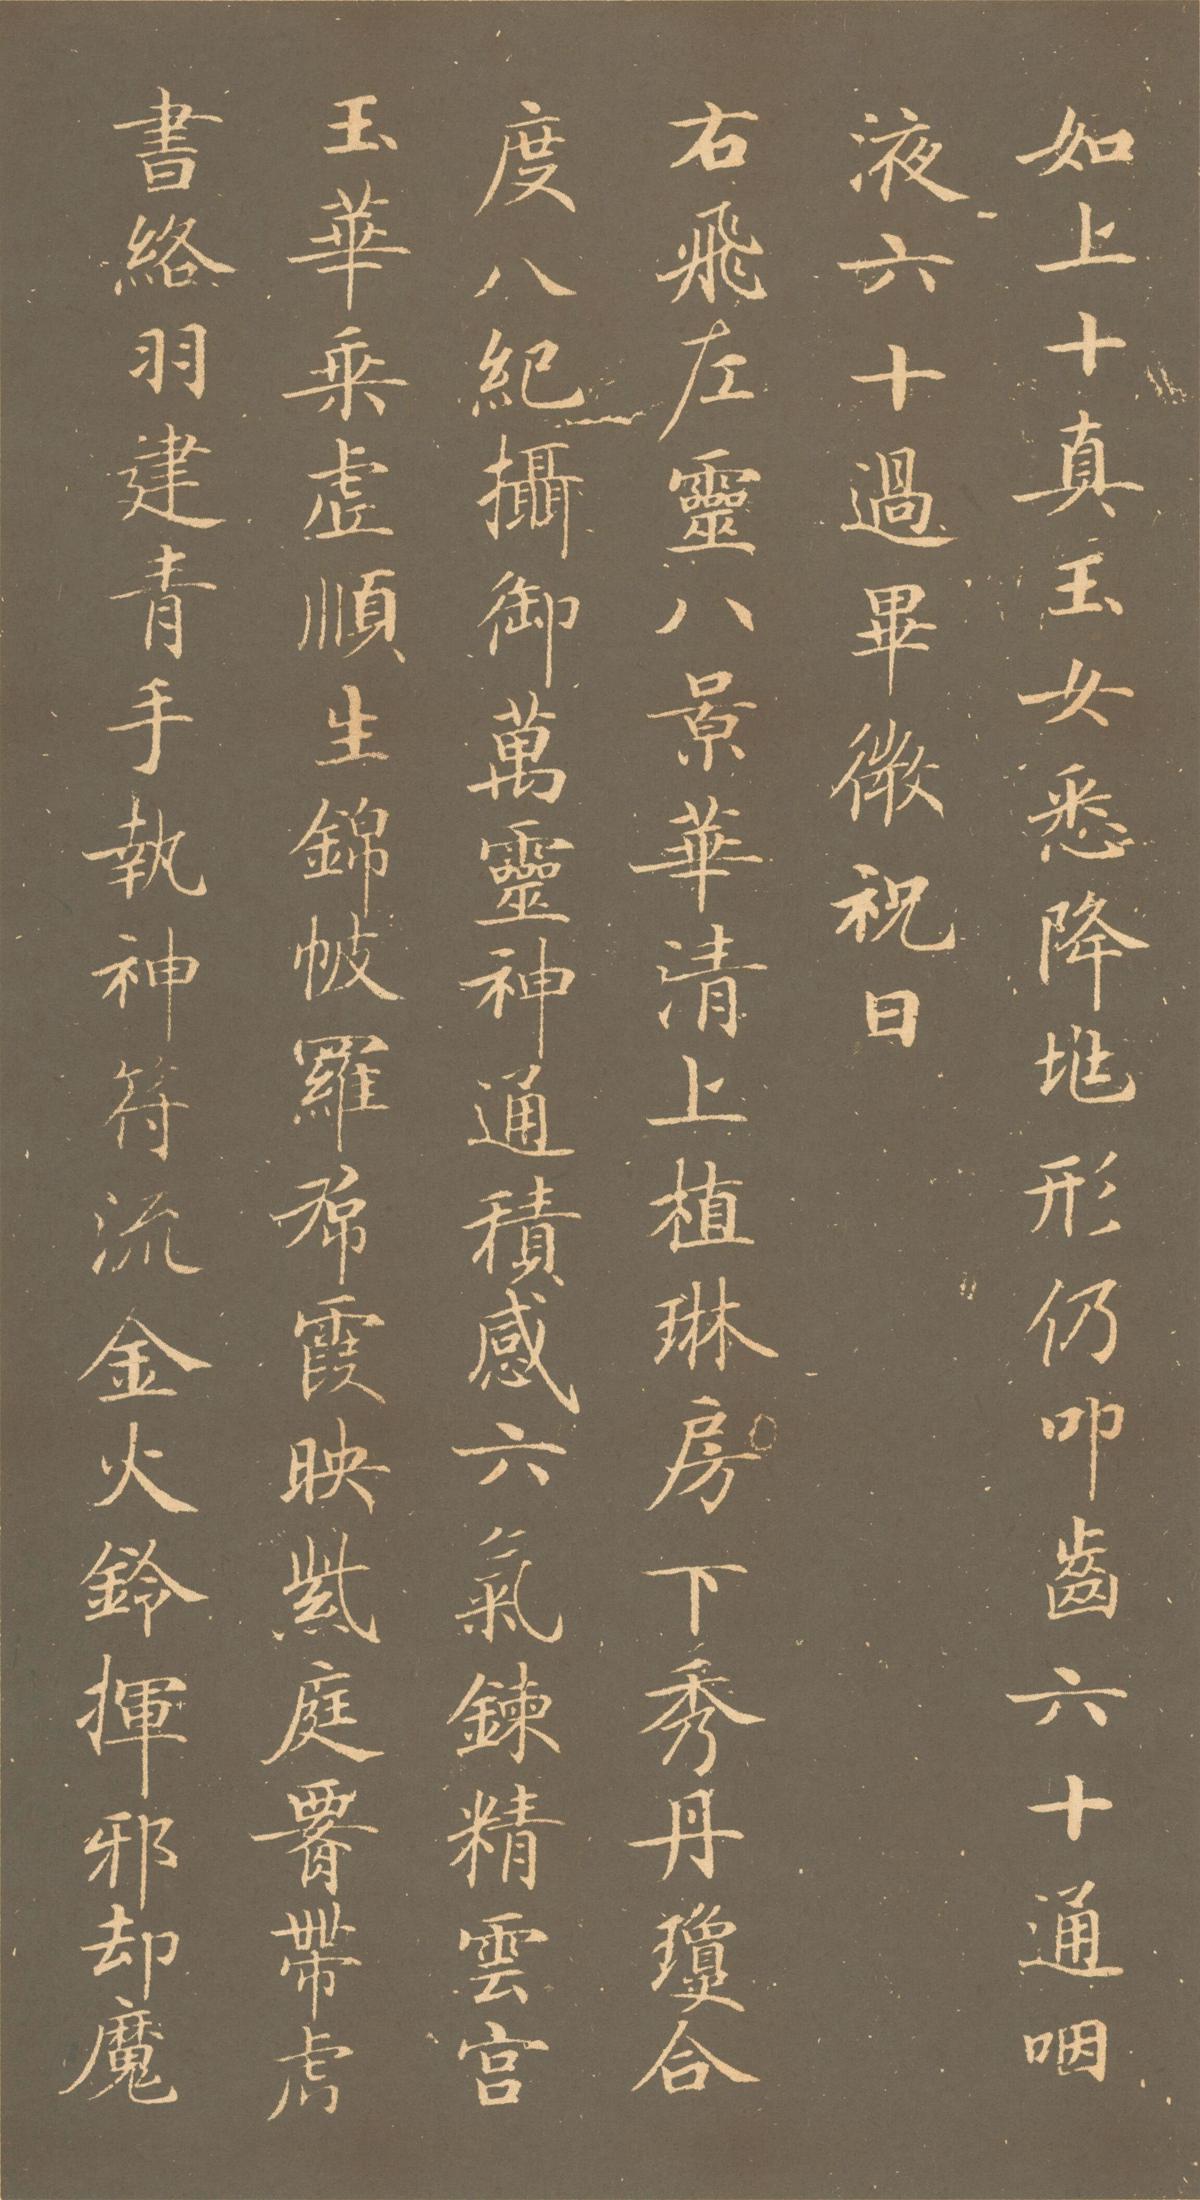 如上十真玉女悉降地形仍叩齒六十通咽
液六十過畢微祝曰
右飛左靈八景華清上植琳房下秀丹瓊合
度八紀攝御萬靈神通積感六氣鍊精雲宮
玉華乘虛順生錦帔羅裙霞映紫庭腰帶虎
書絡羽建青手執神符流金火鈴揮邪却魔